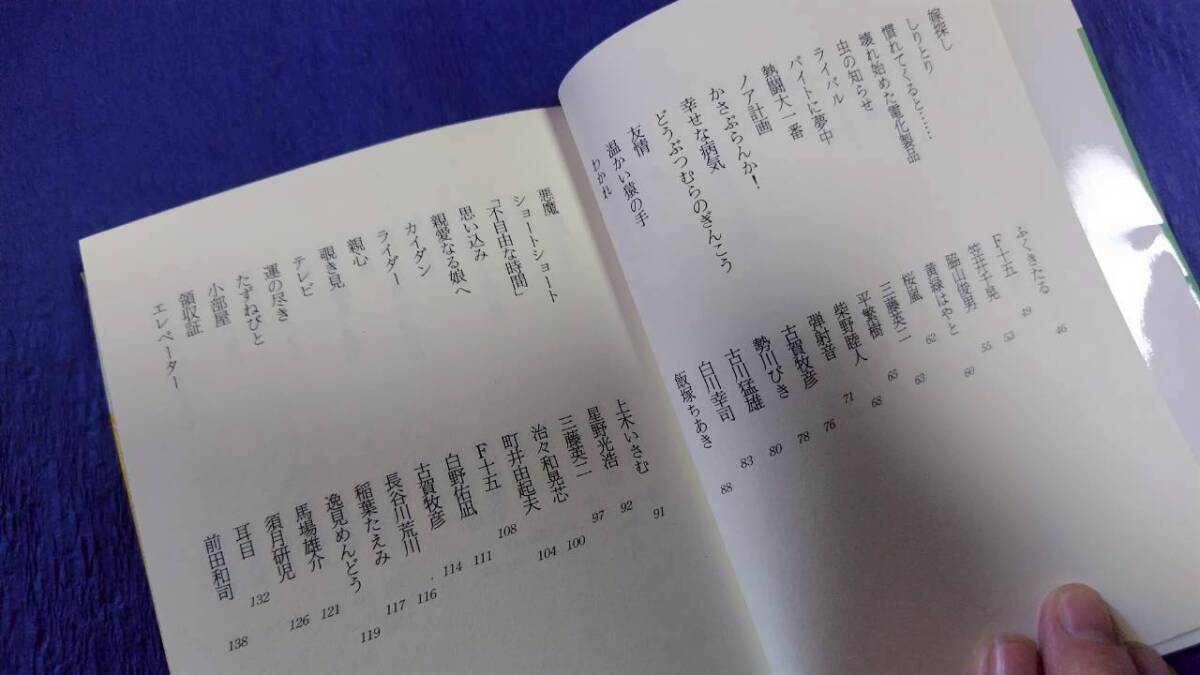 嫁探し　ふくきたる　46
しりとり　F十五　49
慣れてくると……　笠井千晃　53
壊れ始めた電化製品　脇山俊男　55
虫の知らせ　黄緑はやと　60
ライバル　桜風　62
バイトに夢中　三藤英二　63
熱闘大一番　平繁樹　65
ノア計画　柴野睦人　68
かさぶらんか！　弾射音　71
幸せな病気　古賀牧彦　76
どうぶつむらのぎんこう　勢川びき　78
友情　古川猛雄　80
温かい猿の手　白川幸司　83
わかれ　飯塚ちあき　88
悪魔　上木いさむ　91
ショートショート　星野光浩　92
「不自由な時間」　三藤英二　97
思い込み　治々和晃芯　100
親愛なる娘へ　町井由起夫　104
カイダン　F十五　108
ライダー　白野佑凪　111
親心　古賀牧彦　114
覗き見　長谷川荒川　116
テレビ　稲葉たえみ　117
運の尽き　逸見めんどう　119
たずねびと　馬場雄介　121
小部屋　須月研児　126
領収証　耳目　132
エレベーター　前田和司　138